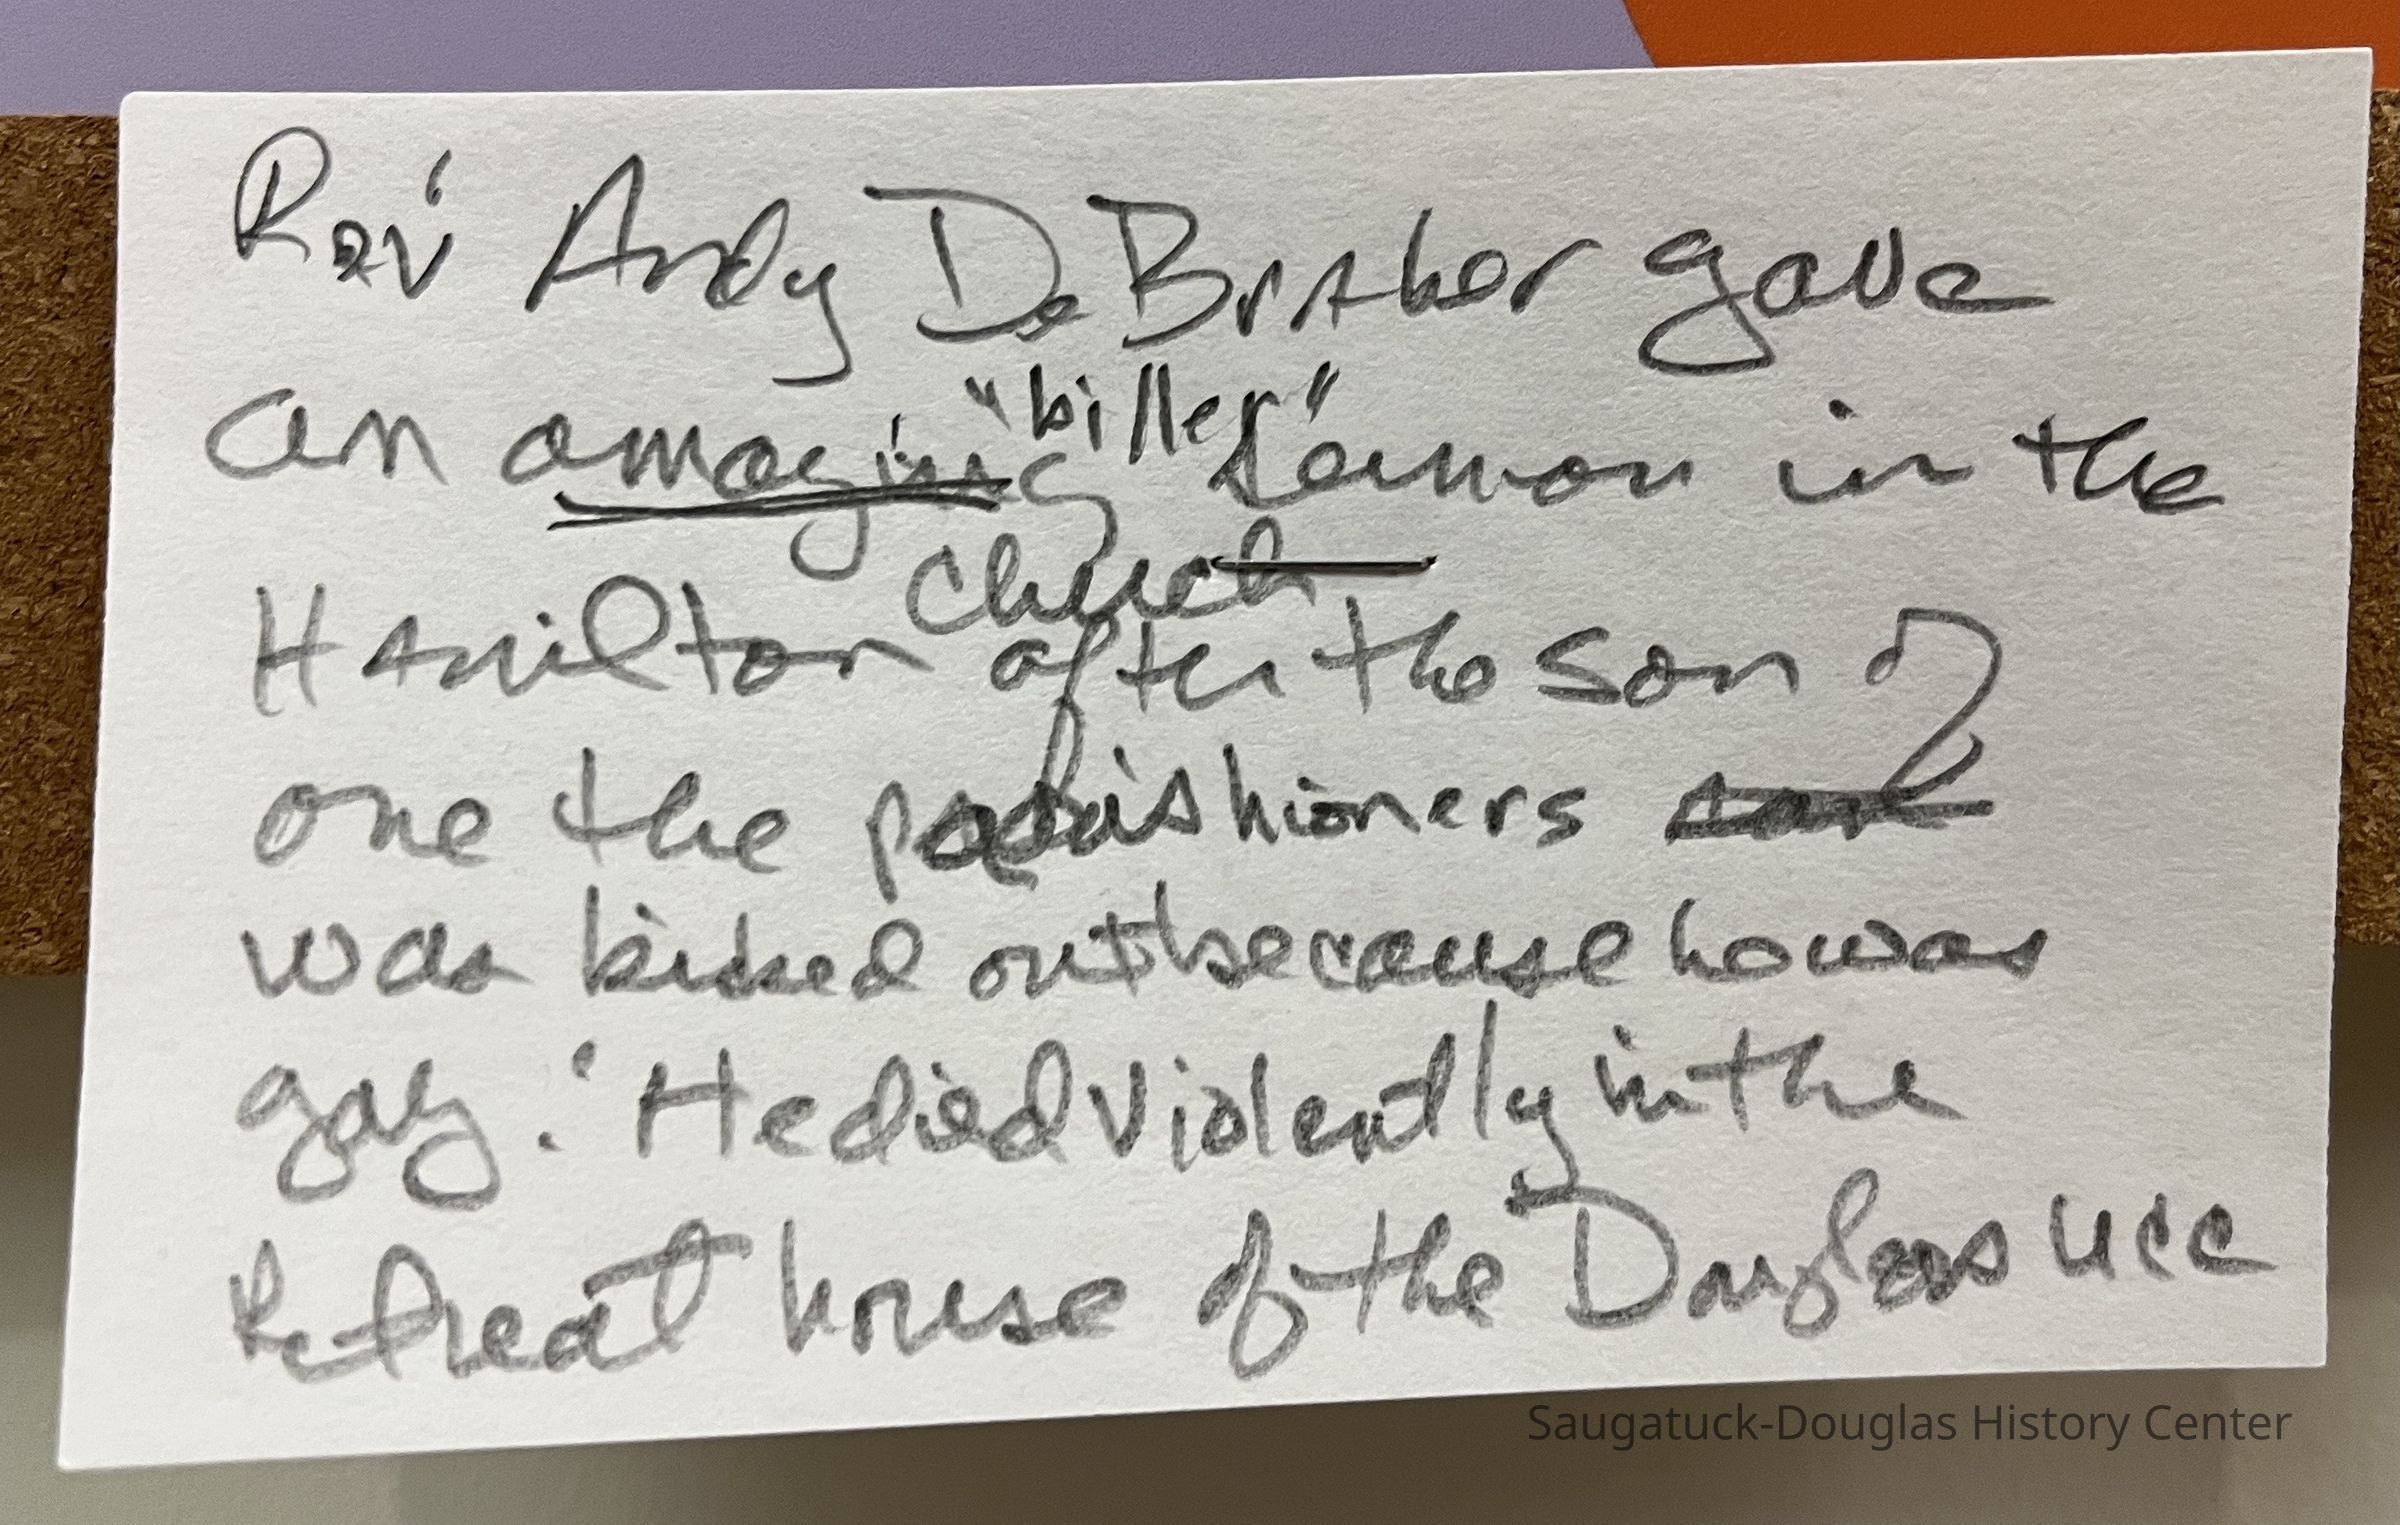 Rev Andy DeBraker gave
an amazing "killer" sermon in the
Hamilton church after the son of
one the parishioners
was kicked out because he was
gay. He died violently in the
Retreat house of the Douglas UCC
Saugatuck-Douglas History Center